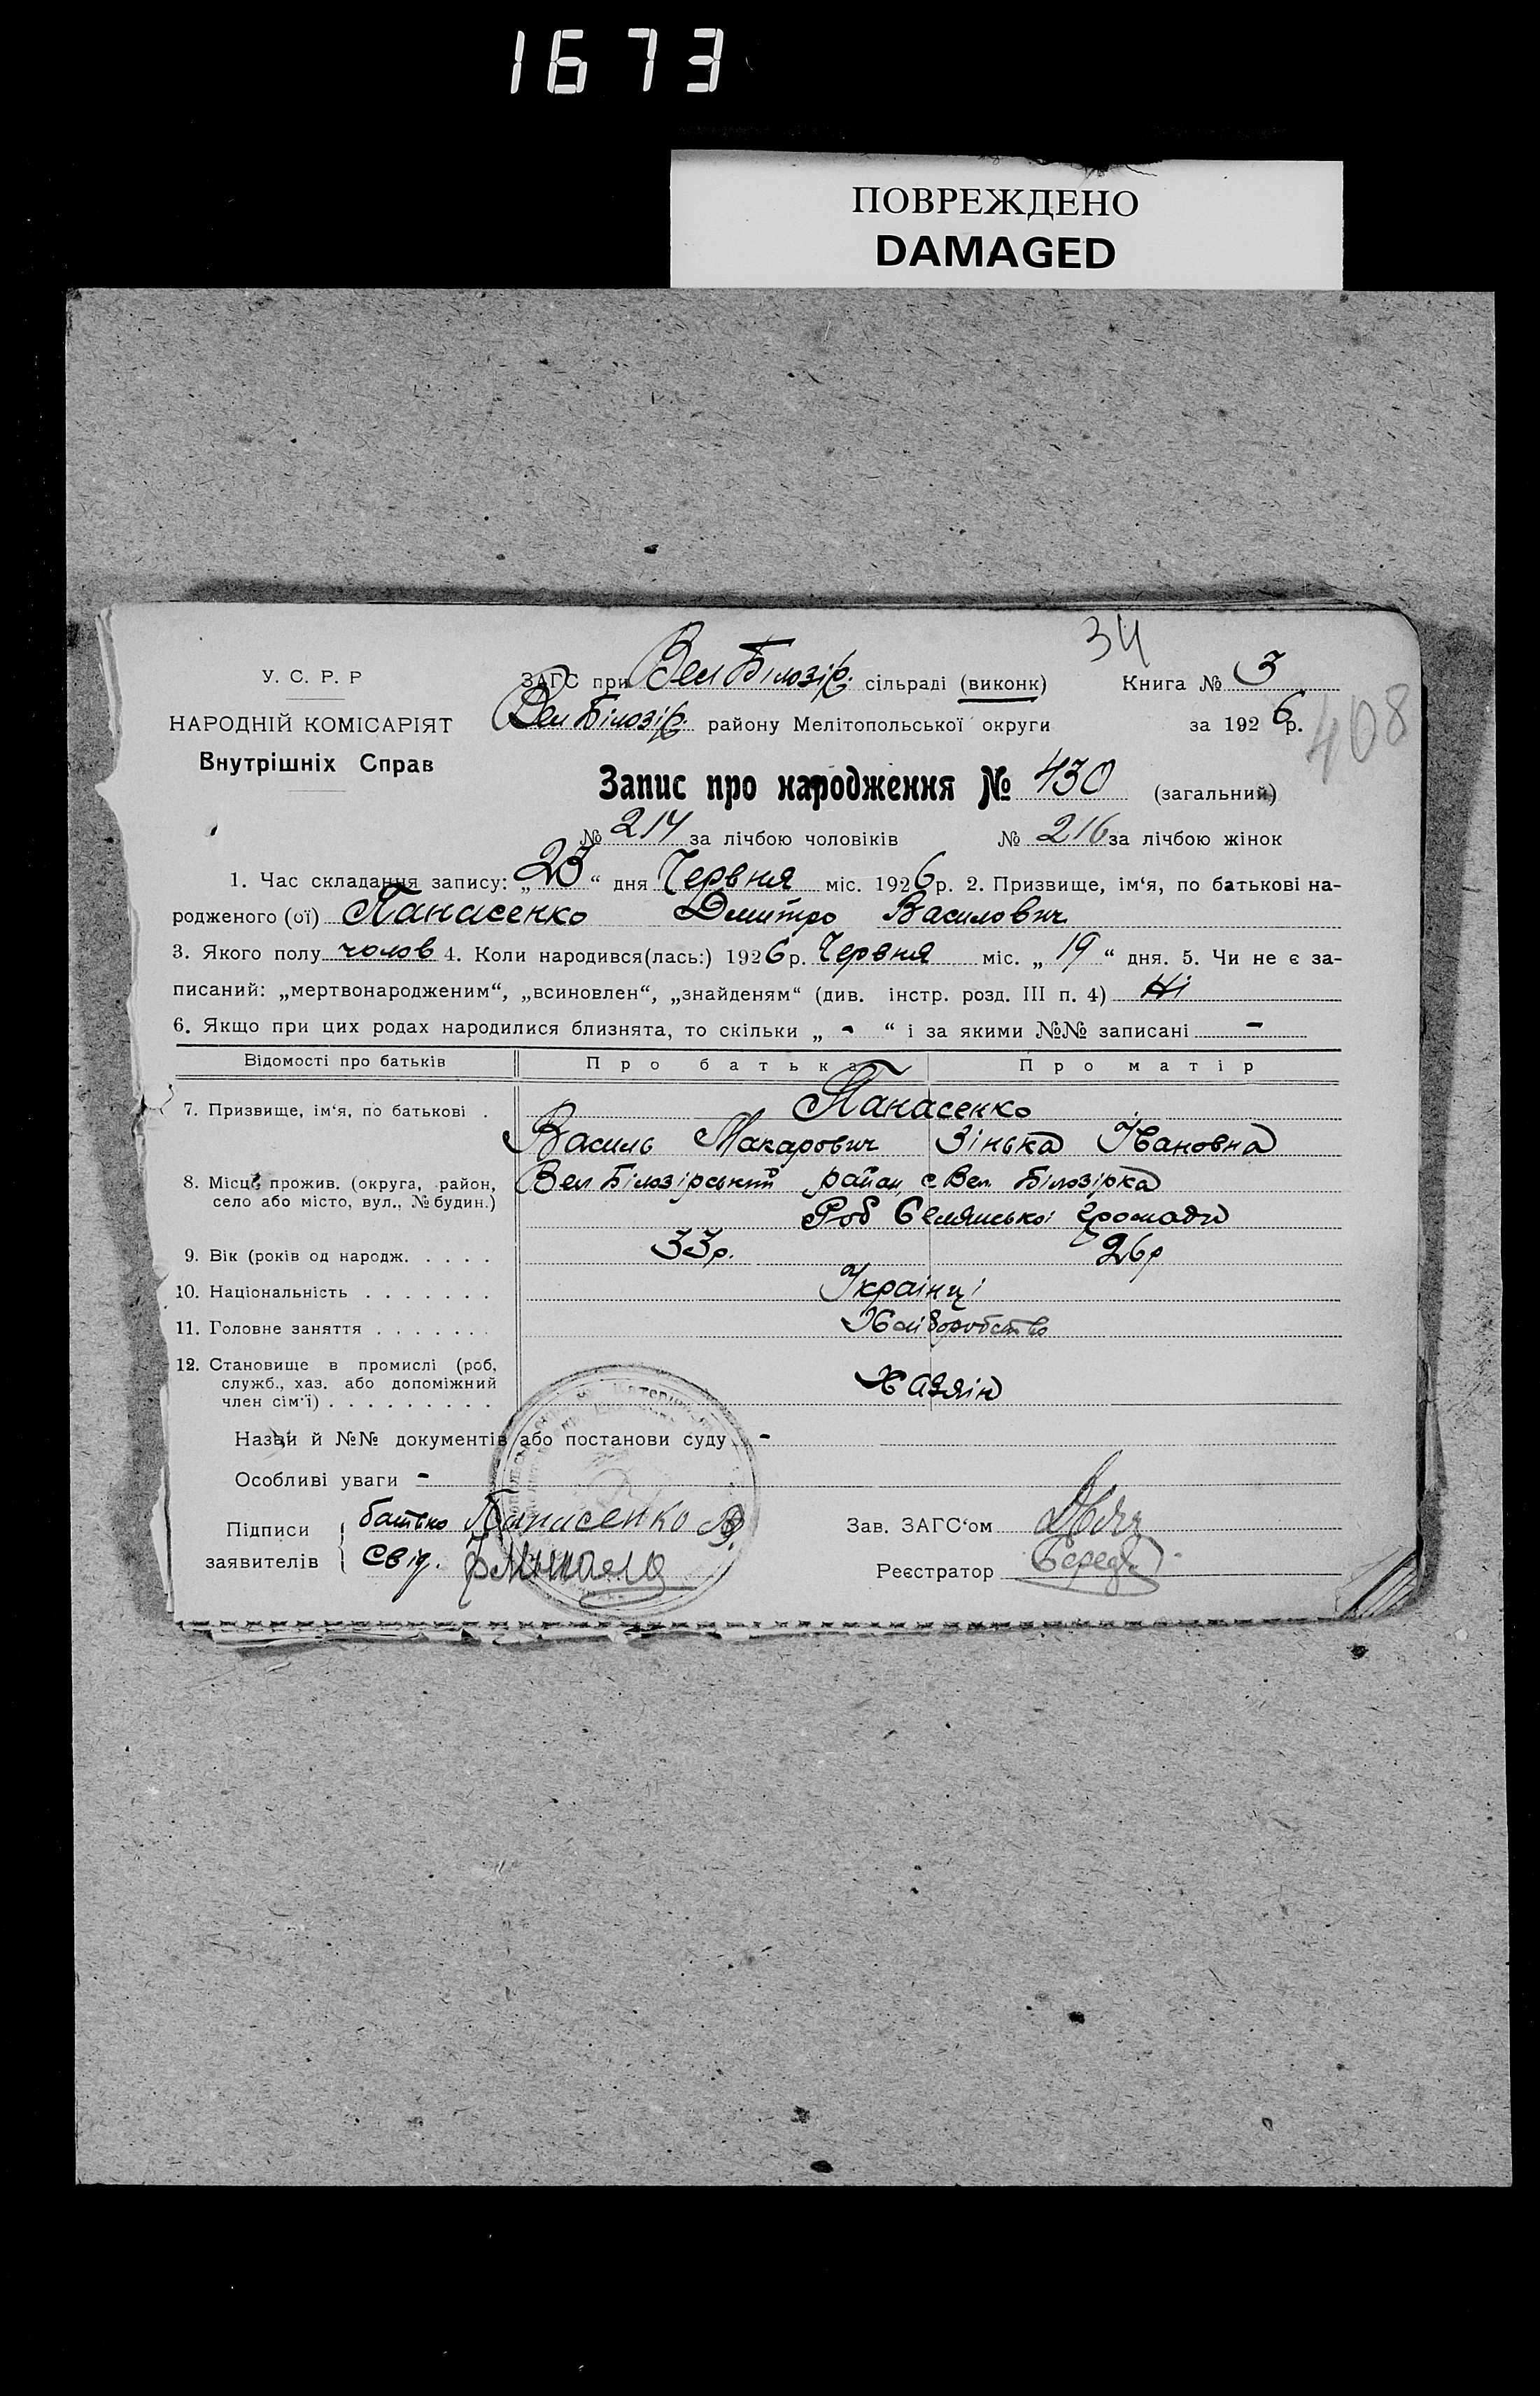 1673
ПОВРЕЖДЕНО
DAMAGED
34
У. С. Р. Р
ЗАГС при Вел Білозір. сільраді (виконк) Книга № 3
НАРОДНІЙ КОМІСАРІЯТ Вел Білозір. району Мелітопольської округи за 1926р.
408
Внутрішніх Справ
Запис про народження № 430 (загальний)
№ 214 за лічбою чоловіків № 216 за лічбою жінок
1. Час складання запису: „23“ дня Червня міс. 1926р. 2. Призвище, ім‘я, по батькові на-
родженого (ої) Панасенко Дмитро Василович
3. Якого полу чолов 4. Коли народився(лась:) 1926р. Червня міс. „19“ дня. 5. Чи не є за-
писаний: „мертвонародженим“, „всиновлен“, „знайденям“ (див. інстр. розд. III п. 4) Ні
6. Якщо при цих родах народилися близнята, то скільки „ - “ і за якими №№ записані -
Відомості про батьків Про батька Про матір
7. Призвище, ім‘я, по батькові . Панасенко
Василь Макарович Зінька Івановна
8. Місце прожив. (округа, район, Вел Білозірський район, с Вел Білозірка
село або місто, вул., № будин.)
громади
9. Вік (років од народж. . . . . 33р. 26р
10. Національність . . . . . . . Українці
11. Головне заняття . . . . . . . Хліборобство
12. Становище в промислі (роб,
служб., хаз. або допоміжний Хазяін
член сім‘ї) . . . . . . . . .
Назви й №№ документів або постанови суду -
Особливі уваги -
Підписи батько Панасенко В.
Зав. ЗАГС‘ом
заявителів свід.
Реєстратор